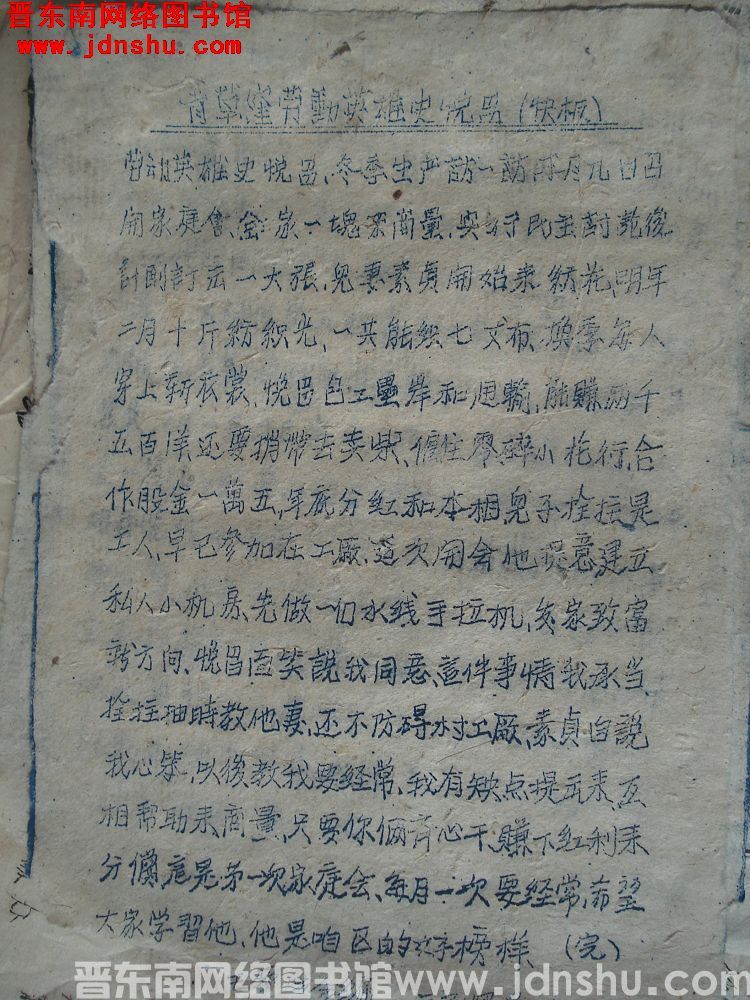 晋东南网络图书馆
www.jdnshu.com
青草窪劳動英雄史悅昌(快板)
劳动英雄史悅昌、冬季生产訪一訪、四月九日召
開家庭會、全家一塊来商量、実行民主討論後
計劃訂出一大張、兒妻素貞開始来纺花、明年
二月十斤紡織光、一共能织七丈布、換季每人
穿上新衣裳、悅昌包工壘岸和运輸、能賺两千
五百洋、还要捎带去卖柴、僱住零碎小扥行、合
作股金一萬五、年底分红和本相、兒子栓拄是
工人、早已参加在工厰、這次開会他提意建立
私人小机房、先做一个水线手拉机、发家致富
新方向、悅昌面笑說我同意、這件事情我承当、
栓拄抽時教他妻、还不防碍村工厰、素貞自說
我心笨、以後教我要经常、我有缺点提出来、互
相帮助来商量、只要你俩齐心干、賺下红利来
分償、這是第一次家庭会、每月一次要经常、希望
大家学習他、他是咱区的好榜样 (完)
晋东南网络图书馆www.jdnshu.com